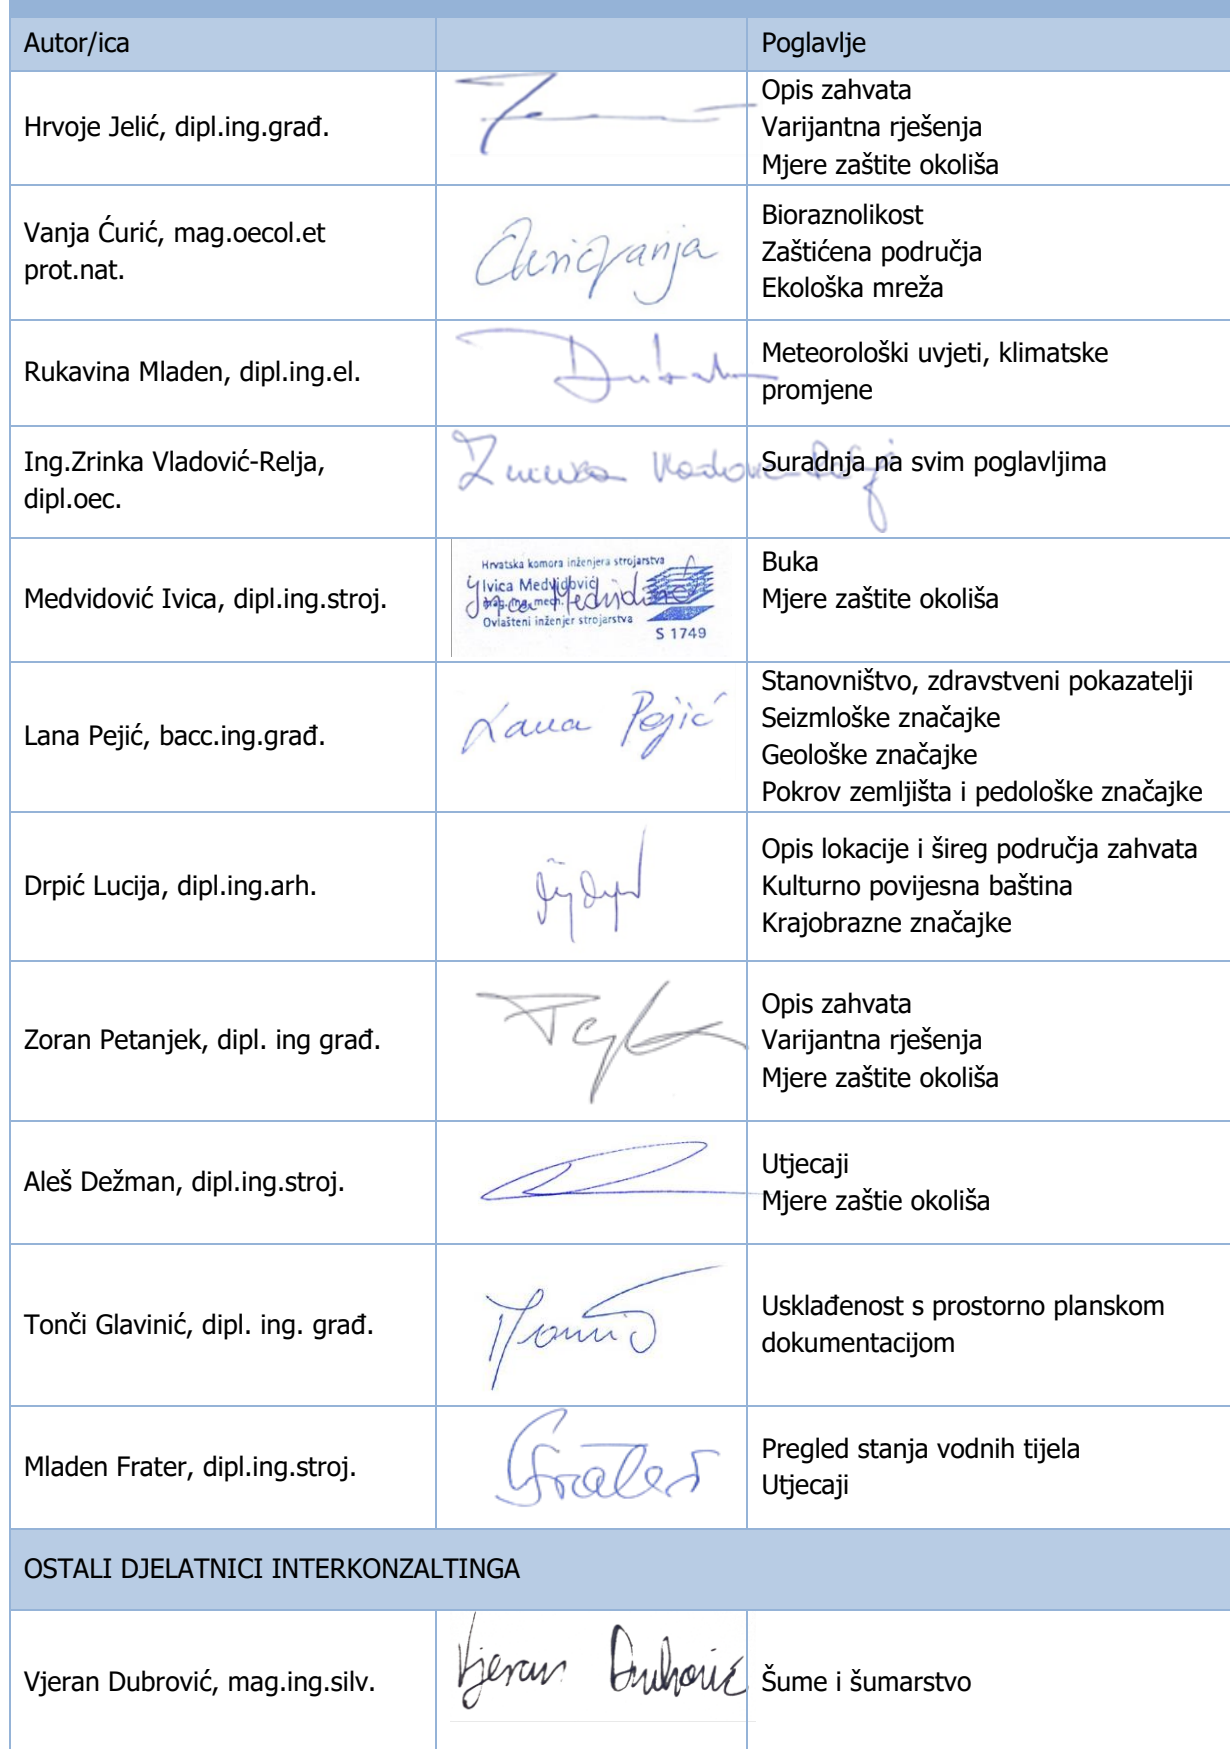 Autor/ica
Poglavlje
Hrvoje Jelić, dipl.ing.građ.
Opis zahvata
Varijantna rješenja
Mjere zaštite okoliša
Vanja Ćurić, mag.oecol.et
prot.nat.
Ćurić Vanja
Bioraznolikost
Zaštićena područja
Ekološka mreža
Rukavina Mladen, dipl.ing.el.
Meteorološki uvjeti, klimatske
promjene
Ing.Zrinka Vladović-Relja,
dipl.oec.
Suradnja na svim poglavljima
Medvidović Ivica, dipl.ing.stroj.
Hrvatska komora inženjera strojarstva
Ivica Medvidović
mag.ing.mech.
Ovlašteni inženjer strojarstva
S 1749
Buka
Mjere zaštite okoliša
Lana Pejić, bacc.ing.građ.
Lana Pejić
Stanovništvo, zdravstveni pokazatelji
Seizmloške značajke
Geološke značajke
Pokrov zemljišta i pedološke značajke
Drpić Lucija, dipl.ing.arh.
Opis lokacije i šireg područja zahvata
Kulturno povijesna baština
Krajobrazne značajke
Zoran Petanjek, dipl. ing građ.
Opis zahvata
Varijantna rješenja
Mjere zaštite okoliša
Aleš Dežman, dipl.ing.stroj.
Utjecaji
Mjere zaštie okoliša
Tonči Glavinić, dipl. ing. građ.
Usklađenost s prostorno planskom
dokumentacijom
Mladen Frater, dipl.ing.stroj.
Frater
Pregled stanja vodnih tijela
Utjecaji
OSTALI DJELATNICI INTERKONZALTINGA
Vjeran Dubrović, mag.ing.silv.
Vjeran Dubrović
Šume i šumarstvo